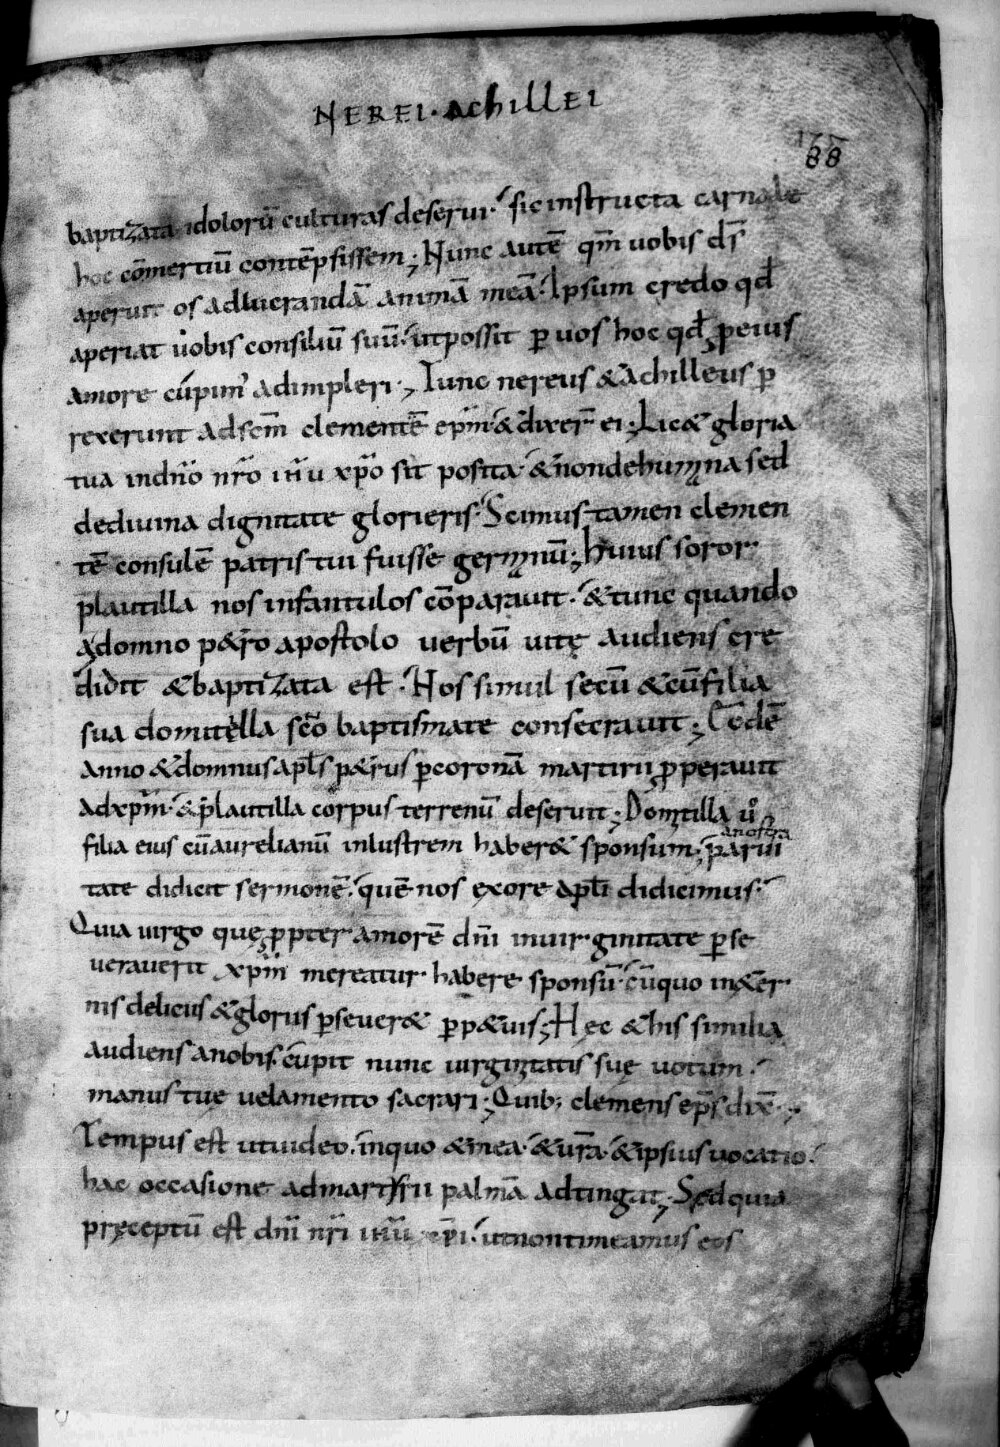 NEREI · AchILLEI
88
baptizata idolorū culturas deserui · sic instructa carnale
hoc cōmertiū contēpsissem ; Nunc autē qm̄ uobis dn̄s
aperuit os ad lucrandā animā meā · Ipsum credo qđ
aperiat uobis consiliū suū · ut possit ꝑ uos hoc qđ ꝓ eius
amore cupim᾽ adimpleri ; Tunc nereus & achilleus ꝑ
rexerunt ad sc̄m clementē ep̄m · & dixer̄ ei ; Lic& gloria
tua in dn̄o nr̄o ihū xp̄o sit posita · & non de humana sed
de diuina dignitate glorieris · Scimus tamen clemen
tē consulē patris tui fuisse germanū ; Huius soror
plautilla nos infantulos cōparauit · & tunc quando
a domno p&ro apostolo uerbū uitę audiens cre
didit & baptizata est · Nos simul secū & cū filia
sua domitella sc̄o baptismate consecrauit ; Eodē
anno & domnus apl̄s p&rus ꝑ coronā martirii ꝓperauit
ad xp̄m · & plautilla corpus terrenū deseruit ; Domitilla ů
filia eius cū aurelianū inlustrem haber& sponsum ; a nostra parui
tate didicit sermonē · quē nos ex ore apl̄i didicimus ·
Quia uirgo quę ꝓpter amorē dn̄i in uirginitate ꝑse
uerauerit xp̄m mereatur habere sponsū · cū quo in &er
nis deliciis & gloriis ꝑseuer& ꝑp&uis ; Hęc & his similia
audiens a nobis · cupit nunc uirginitatis suę uotum ·
manus tuę uelamento sacrari ; Quib; clemens ep̄s dix̄ ·
Tempus est ut uideo · in quo & mea · & ur̄a · & ipsius uocatio ·
hac occasione ad martyrii palmā adtingat ; Sed quia
pręceptū est dn̄i nr̄i ihū xp̄i · ut non timeamus eos